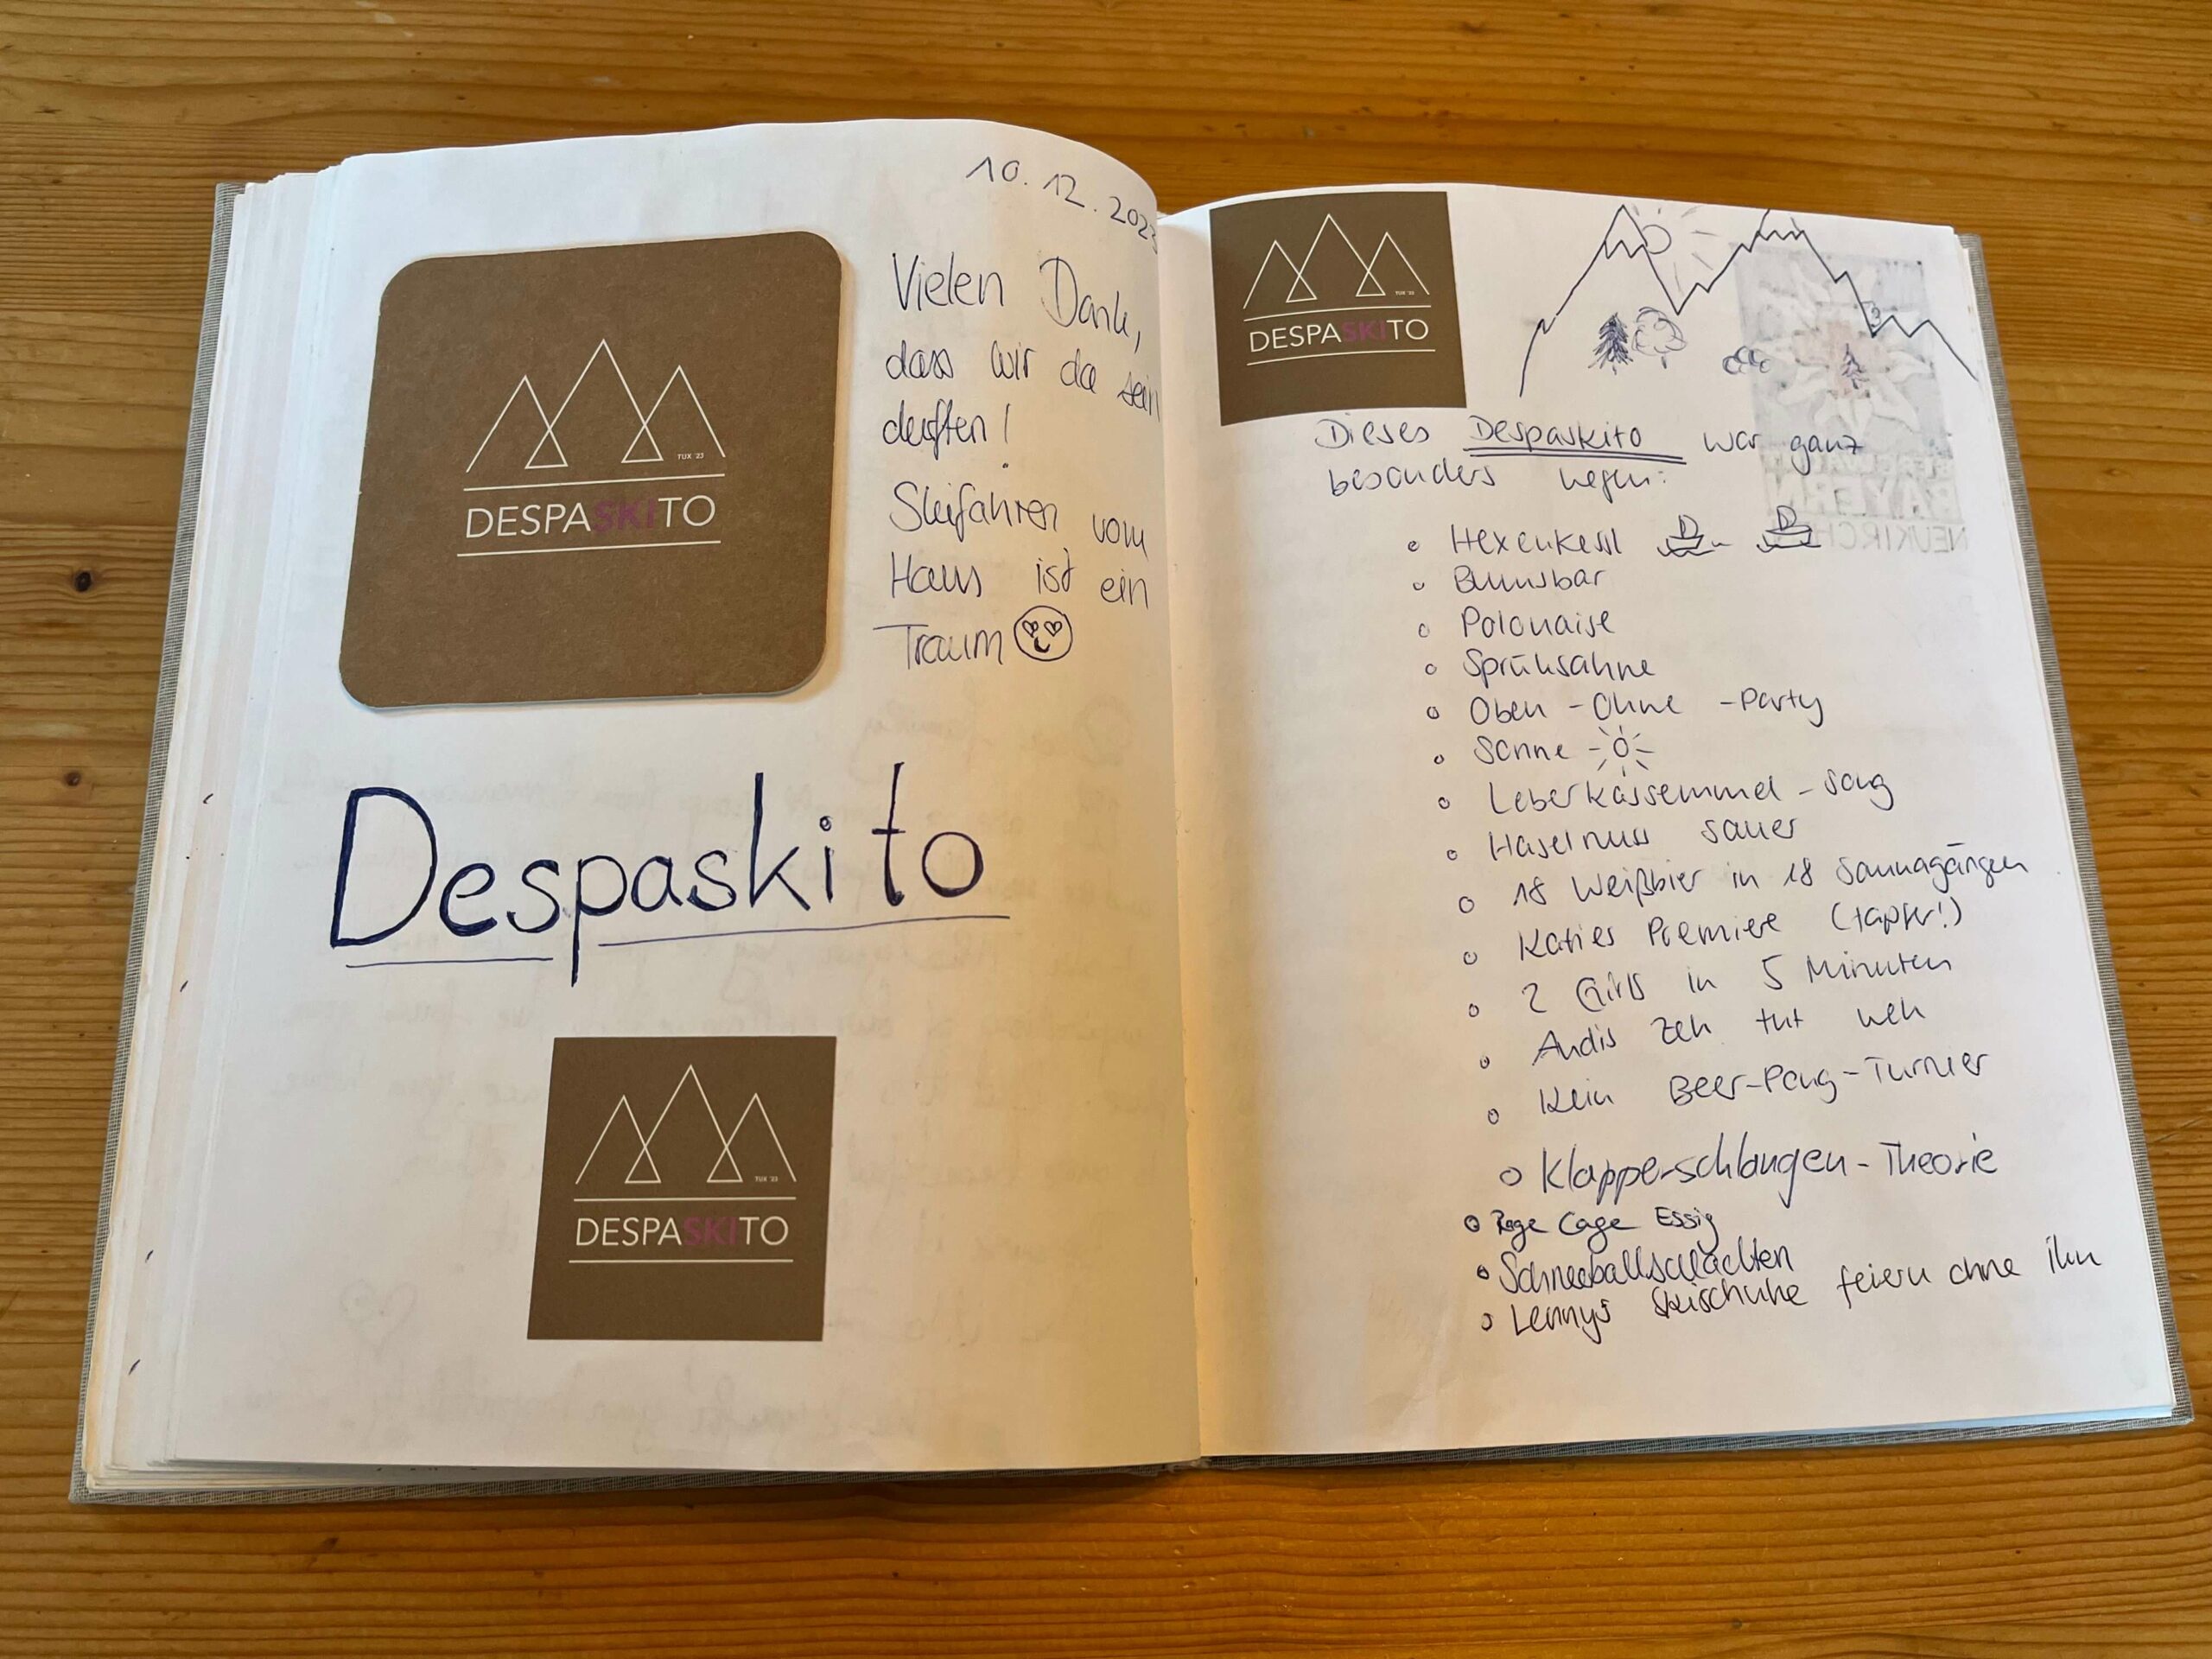 10.12.2023
TUX '23
DESPASKITO
Vielen Dank,
dass wir da sein
durften!
Skifahren vom
Haus ist ein
Traum
Despaskito
TUX '23
DESPASKITO
TUX '23
DESPASKITO
Dieses Despaskito war ganz
besonders wegen:
Hexenkessl
Bumsbar
Polonaise
Sprühsahne
Oben-Ohne-Party
Sonne
Leberkässemmel-song
Haselnuss sauer
18 Weißbier in 18 Saunagängen
Katies Premiere (tapfer!)
2 Girls in 5 Minuten
Andis Zeh tut weh
Kein Beer-Pong-Turnier
Klapperschlangen-Theorie
Cage Essig
Schneeballschlachten
Lennys Skischuhe feiern ohne ihn
BAYERN
NEUKIRCH